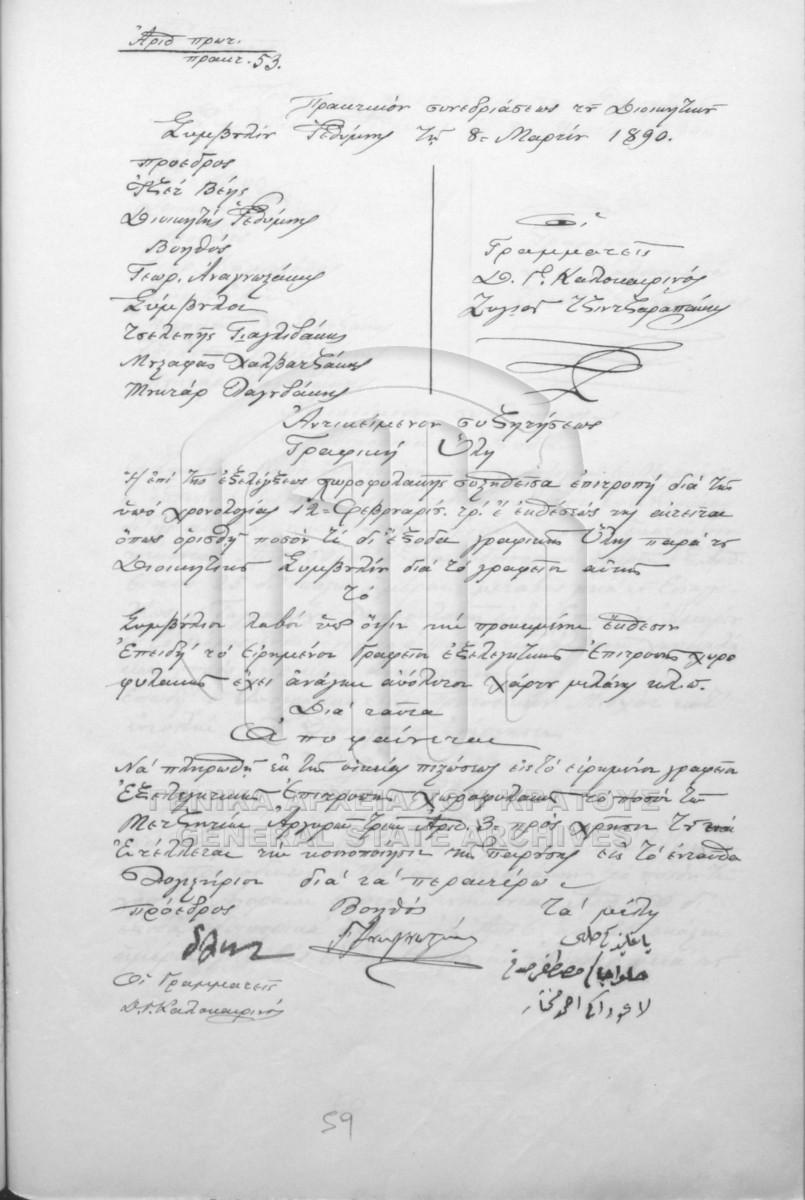 Ἀριθ πρωτ.
πρακτ. 53.
Πρακτικὸν συνεδριάσεως τοῦ Διοικητικοῦ
Συμβουλίου Ρεθύμνης τῆς 8ης Μαρτίου 1890.
Πρόεδρος
Ἰζέτ Βέης
Διοικητὴς Ρεθύμνης
Βοηθός
Γεωρ. Ἀναγνωστάκης
Σύμβουλοι
Τσελεπῆς Γιαγλιδάκης
Μουσταφᾶς Χαλβατζάκης
Μουχτάρ
Οἱ
Γραμματεῖς
Δ. Γ. Καλοκαιρινός
Ἀντικείμενον συζητήσεως
Γραφικὴ Ὕλη
Ἡ ἐπὶ τῆς ἐξελέγξεως χωροφυλακῆς συστηθεῖσα ἐπιτροπὴ διὰ τῆς
ὑπὸ χρονολογίας 12 Φεβρουαρίου ἐκθέσεώς της αἰτεῖται
ὅπως ὁρισθῇ ποσόν τι δι' ἔξοδα γραφικῆς Ὕλης παρὰ τοῦ
Διοικητικοῦ Συμβουλίου διὰ τὸ γραφεῖον αὐτῆς
Τὸ
Συμβούλιον λαβὸν ὑπ' ὄψιν τὴν προκειμένην ἔκθεσιν
Ἐπειδὴ τὸ εἰρημένον Γραφεῖον ἐξελεγκτικῆς Ἐπιτροπῆς χωρο
φυλακῆς ἔχει ἀνάγκην ἀπόλυτον χάρτου μελάνης κτλ.
Διὰ ταῦτα
Ἀποφαίνεται
Νὰ πληρωθῇ ἐκ τῆς οἰκείας πιστώσεως εἰς τὸ εἰρημένον γραφεῖον
Ἐξελεγκτικῆς Ἐπιτροπῆς Χωροφυλακῆς τὸ ποσὸν τῶν
Μετζητίων Ἀργυρῶν τριῶν Ἀριθ. 3 πρὸς χρῆσιν
Ἐντέλλεται τὴν κοινοποίησιν τῆς παρούσης εἰς τὸ ἐνταῦθα
Λογιστήριον διὰ τὰ περαιτέρω
Πρόεδρος Βοηθός Τὰ μέλη
Οἱ Γραμματεῖς
Δ. Γ. Καλοκαιρινός
ΓΕΝΙΚΑ ΑΡΧΕΙΑ ΤΟΥ ΚΡΑΤΟΥΣ
GENERAL STATE ARCHIVES
59